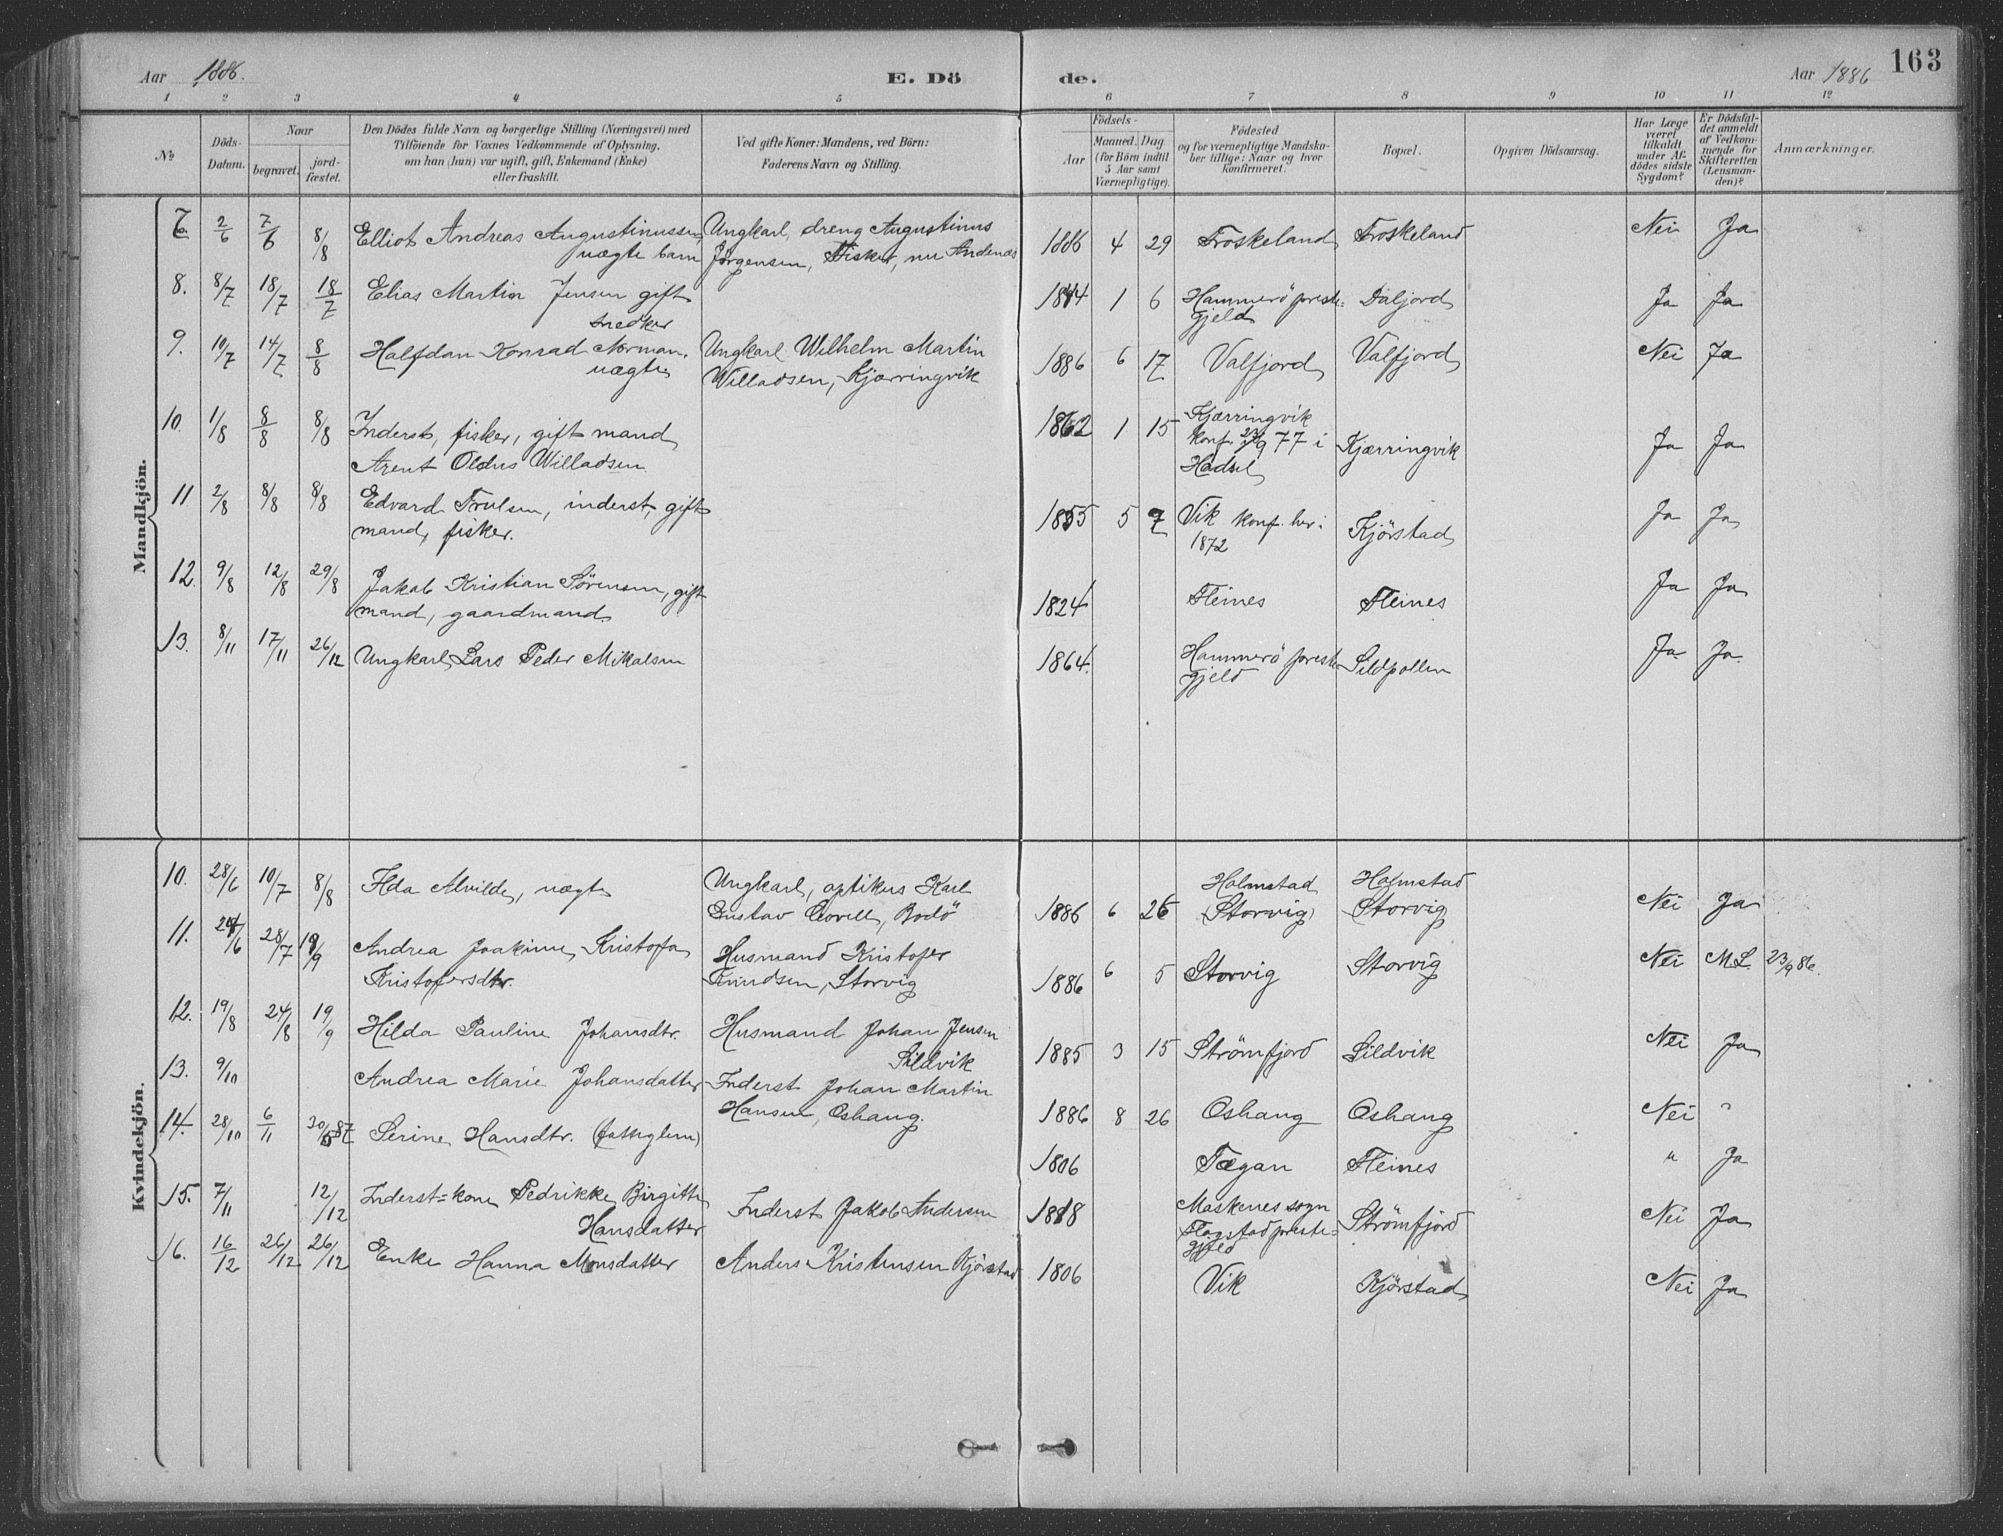 Aar 1886.
E. Döde.
Aar 1886
163
1 2 3 4 5 6 7 8 9 10 11 12
№
Döds-Datum.
Naar
begravet.
jord-fæstet.
Den Dödes fulde Navn og borgerlige Stilling (Næringsvei) med
Tilföiende for Voxnes Vedkommende af Oplysning,
om han (hun) var ugift, gift, Enkemand (Enke)
eller fraskilt.
Ved gifte Koner: Mandens, ved Börn:
Faderens Navn og Stilling.
Födsels-
Aar
Maaned. Dag
(for Börn indtil
5 Aar samt
Værnepligtige).
Födested
og for værnepligtige Mandska-
ber tillige: Naar og hvor
konfirmeret.
Bopæl.
Opgiven Dödsaarsag.
Har Læge
været
tilkaldt
under Af-
dödes sidste
Sygdom?
Er Dödsfal-
det anmeldt
af Vedkom-
mende for
Skifteretten
(Lensman-
den)?
Anmærkninger.
Mandkjön.
7. 2/6 7/6 8/8 Elliot Andreas Augustinussen, Ungkarl, dreng Augustinus 1886 4 29 Froskeland Froskeland Nei Ja
uægte barn Jørgensen, Fisker, nu Andenæs
8. 8/7 18/7 18/7 Elias Martin Jensen gift 1844 1 6 Hammerö preste- Daljord Ja Ja
snedker gjeld
9. 10/7 14/7 8/8 Halfdan Konrad Norman, Ungkarl Wilhelm Martin 1886 6 17 Valfjord Valfjord Nei Ja
uægte Willadsen, Kjærringvik
10. 1/8 8/8 8/8 Inderst, fisker, gift mand 1862 1 15 Kjærringvik
Arent Oldus Willadsen konf. 23/9 77 i Kjærringvik Ja Ja
Hadsel
11 2/8 8/8 8/8 Edvard Trulsen, inderst, gift 1855 5 7 Vik konf. her i Kjörstad Ja Ja
mand, fisker. 1872
12. 9/8 12/8 29/8 Jakob Kristian Sörensen, gift 1824 Fleines Fleines Ja Ja
mand, gaardmand.
13. 8/11 17/11 26/12 Ungkarl Lars Peder Mikalsen 1864. Hammerö preste- Sildpollen Ja Ja
gjeld
Kvindekjön.
10. 28/6 10/7 8/8 Ilda Alvilde, uægte Ungkarl, optikus Karl Holmstad Holmstad
Gustav, Bodö 1886 6 26 (Storvig) Storvig Nei Ja
11. 24/6 28/7 19/9 Andrea Joakime Kristofa Husmand Kristofer 1886 6 5 Storvig Storvig Nei M.L. 23/9 86.
Kristofersdtr. Knudsen, Storvig
12. 19/8 24/8 19/9 Hilda Pauline Johansdtr. Husmand Johan Jensen 1885 3 15 Strömfjord Sildvik Nei Ja
Sildvik
13. 9/10 Andrea Marie Johansdatter Inderst Johan Martin 1886 8 26 Oshang Oshang Nei "
Hansen, Oshang.
14. 28/10 6/11 30/5 87 Serine Hansdtr. (fattiglem) 1806 Tægan Fleines " Ja
15. 7/11 12/12 Inderst-kone Pedrikke Birgitte Inderst Jakob Andersen 1818 Moskenes sogn Strömfjord Nei Ja
Hansdatter Flagstad preste-
gjeld
16. 16/12 26/12 26/12 Enke Hanna Monsdatter Anders Kristensen Kjörstad 1806 Vik Kjörstad Nei Ja